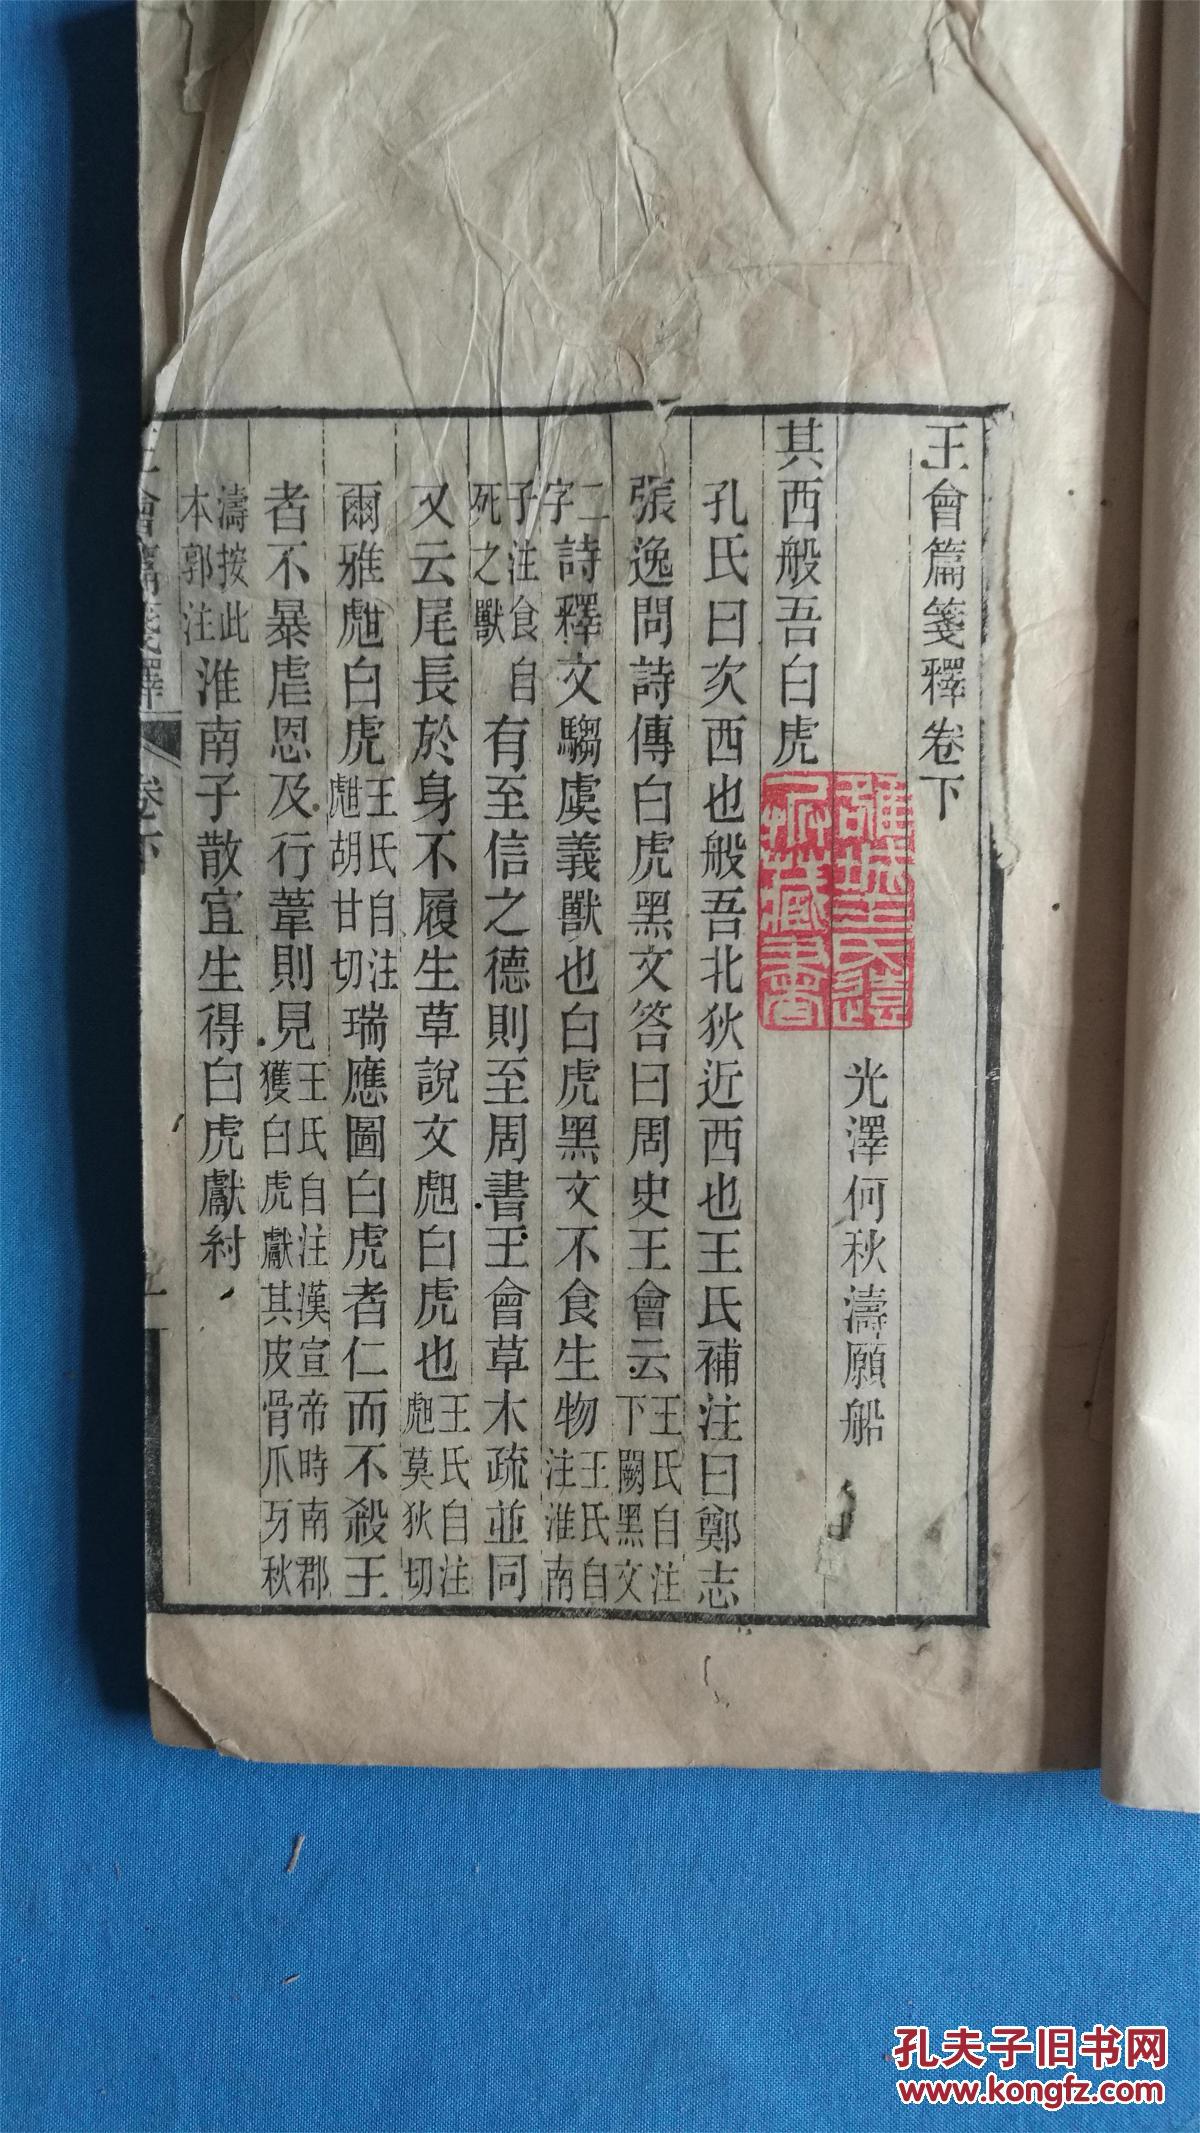 王會篇箋釋卷下
光澤何秋濤願船
其西般吾白虎
孔氏曰次西也般吾北狄近西也王氏補注曰鄭志
張逸問詩傳白虎黑文答曰周史王會云王氏自注下闕黑文
二字詩釋文騶虞義獸也白虎黑文不食生物王氏自注淮南
子注食自死之獸有至信之德則至周書王會草木疏並同
又云尾長於身不履生草說文虪白虎也王氏自注虪莫狄切
爾雅甝白虎王氏自注甝胡甘切瑞應圖白虎者仁而不殺王
者不暴虐恩及行葦則見王氏自注漢宣帝時南郡獲白虎獻其皮骨爪牙秋
濤按此本郭注淮南子散宜生得白虎獻紂
王會篇箋釋 卷下
藏書
孔夫子旧书网
www.kongfz.com